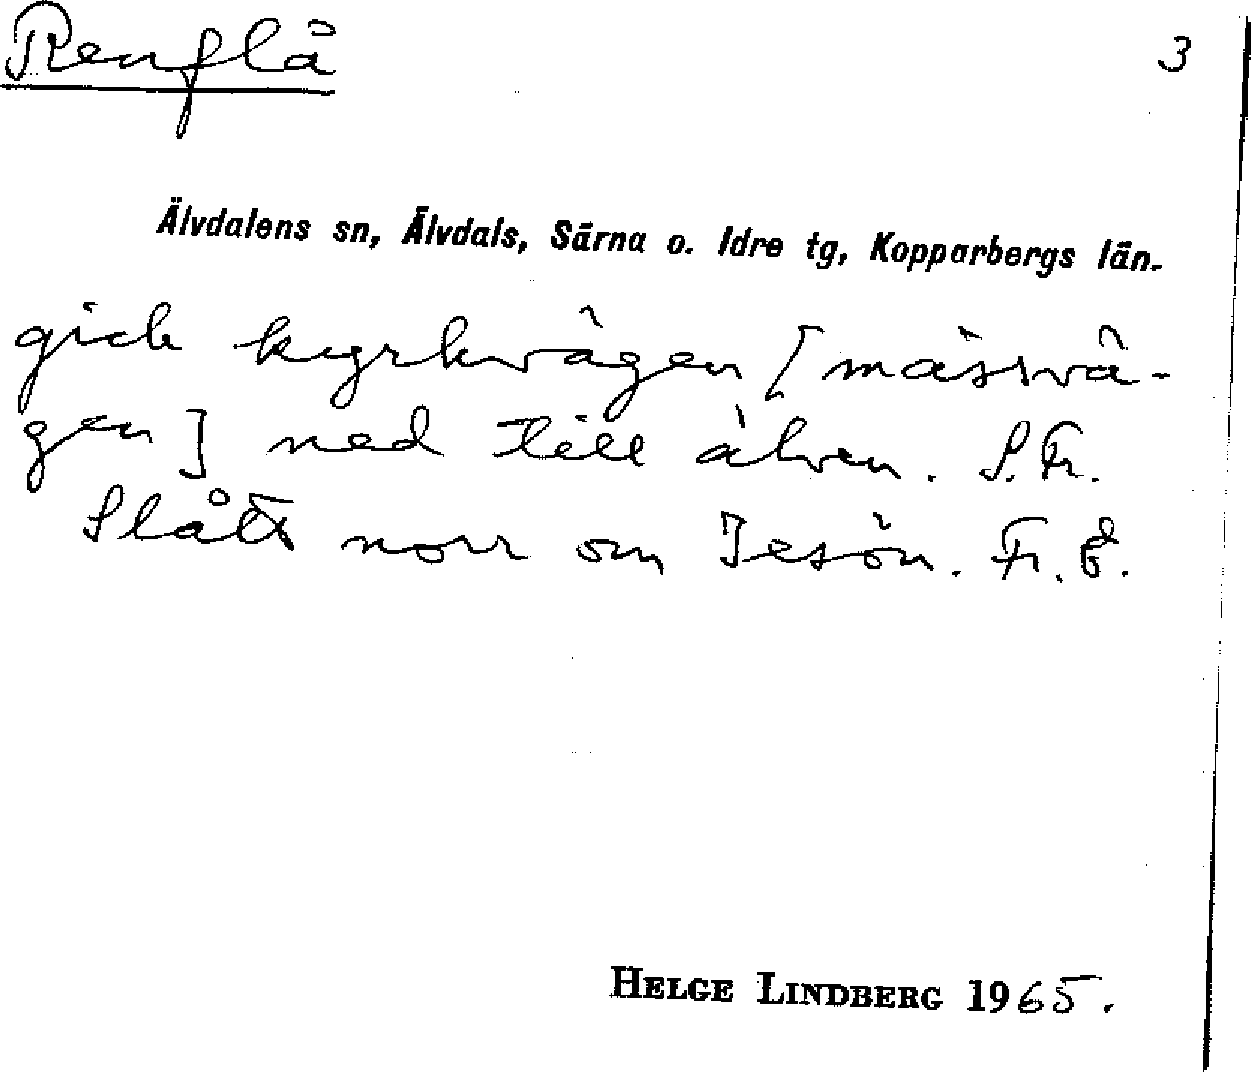 Renflå 3
Älvdalens sn, Älvdals, Särna o. Idre tg, Kopparbergs län.
gick kyrkvägen [mässvä-
gen] ned till älven. S. Fr.
Slått norr om Jesön. Fr. E.
HELGE LINDBERG 1965.